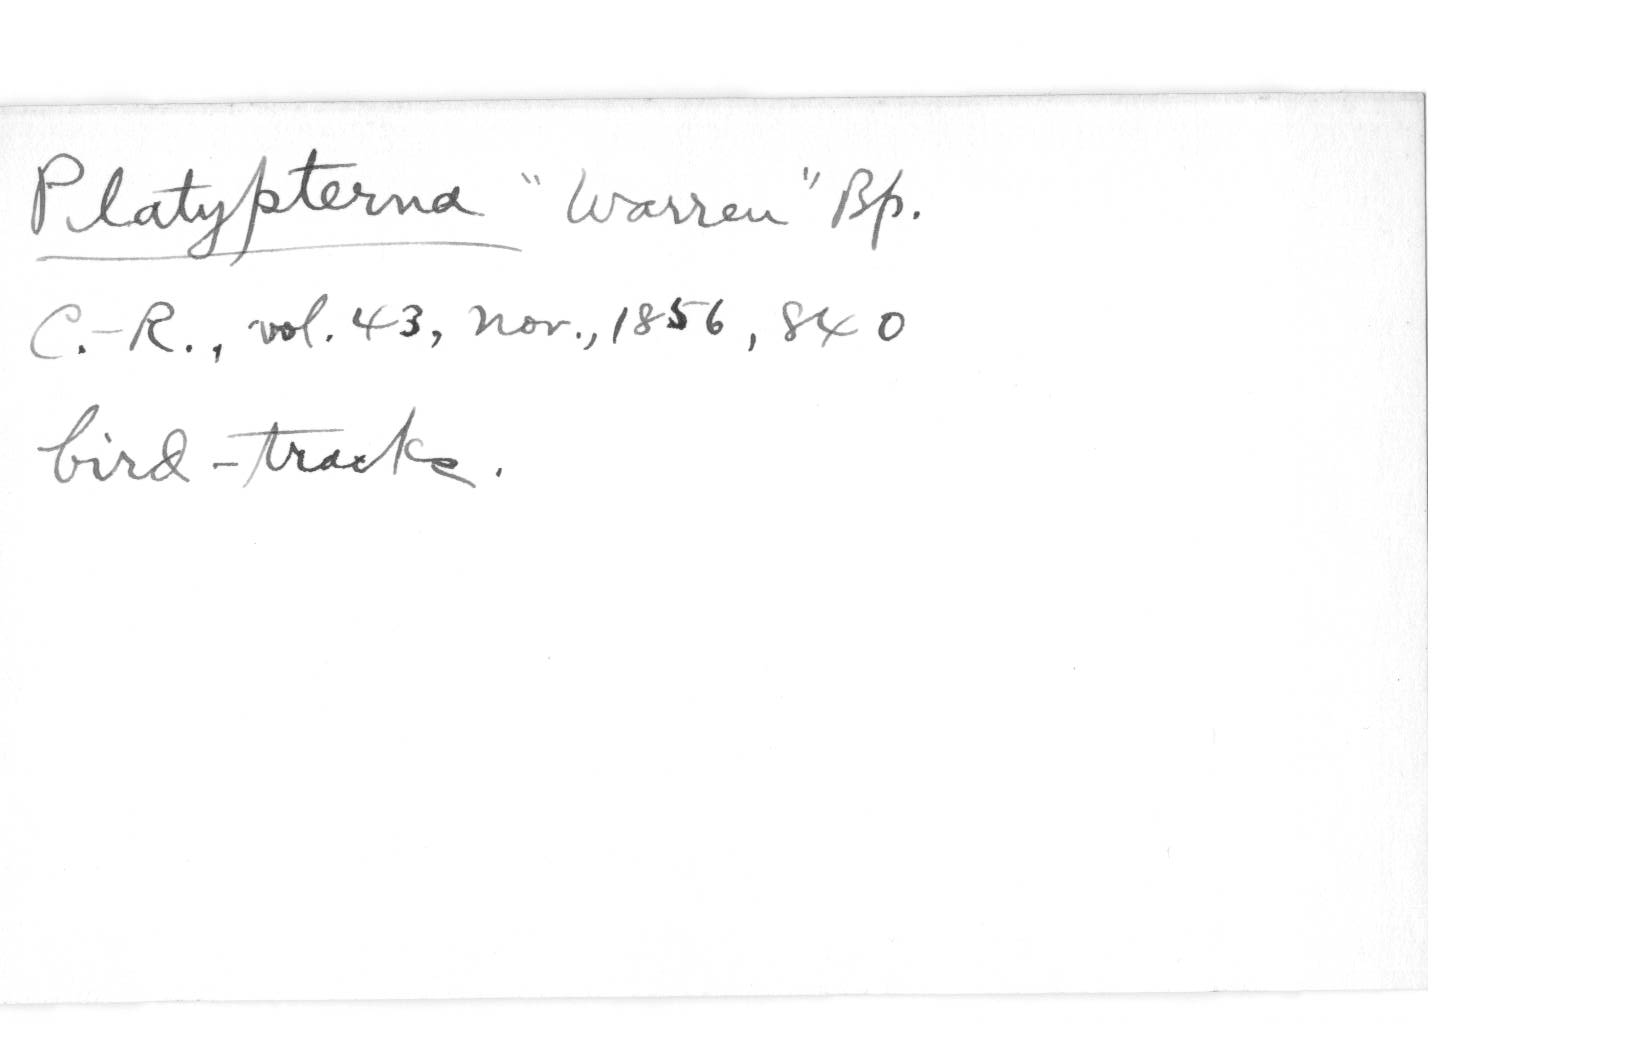 Platypterna "Warren" Bp.
C.-R., vol. 43, Nov., 1856, 840
bird-tracks.